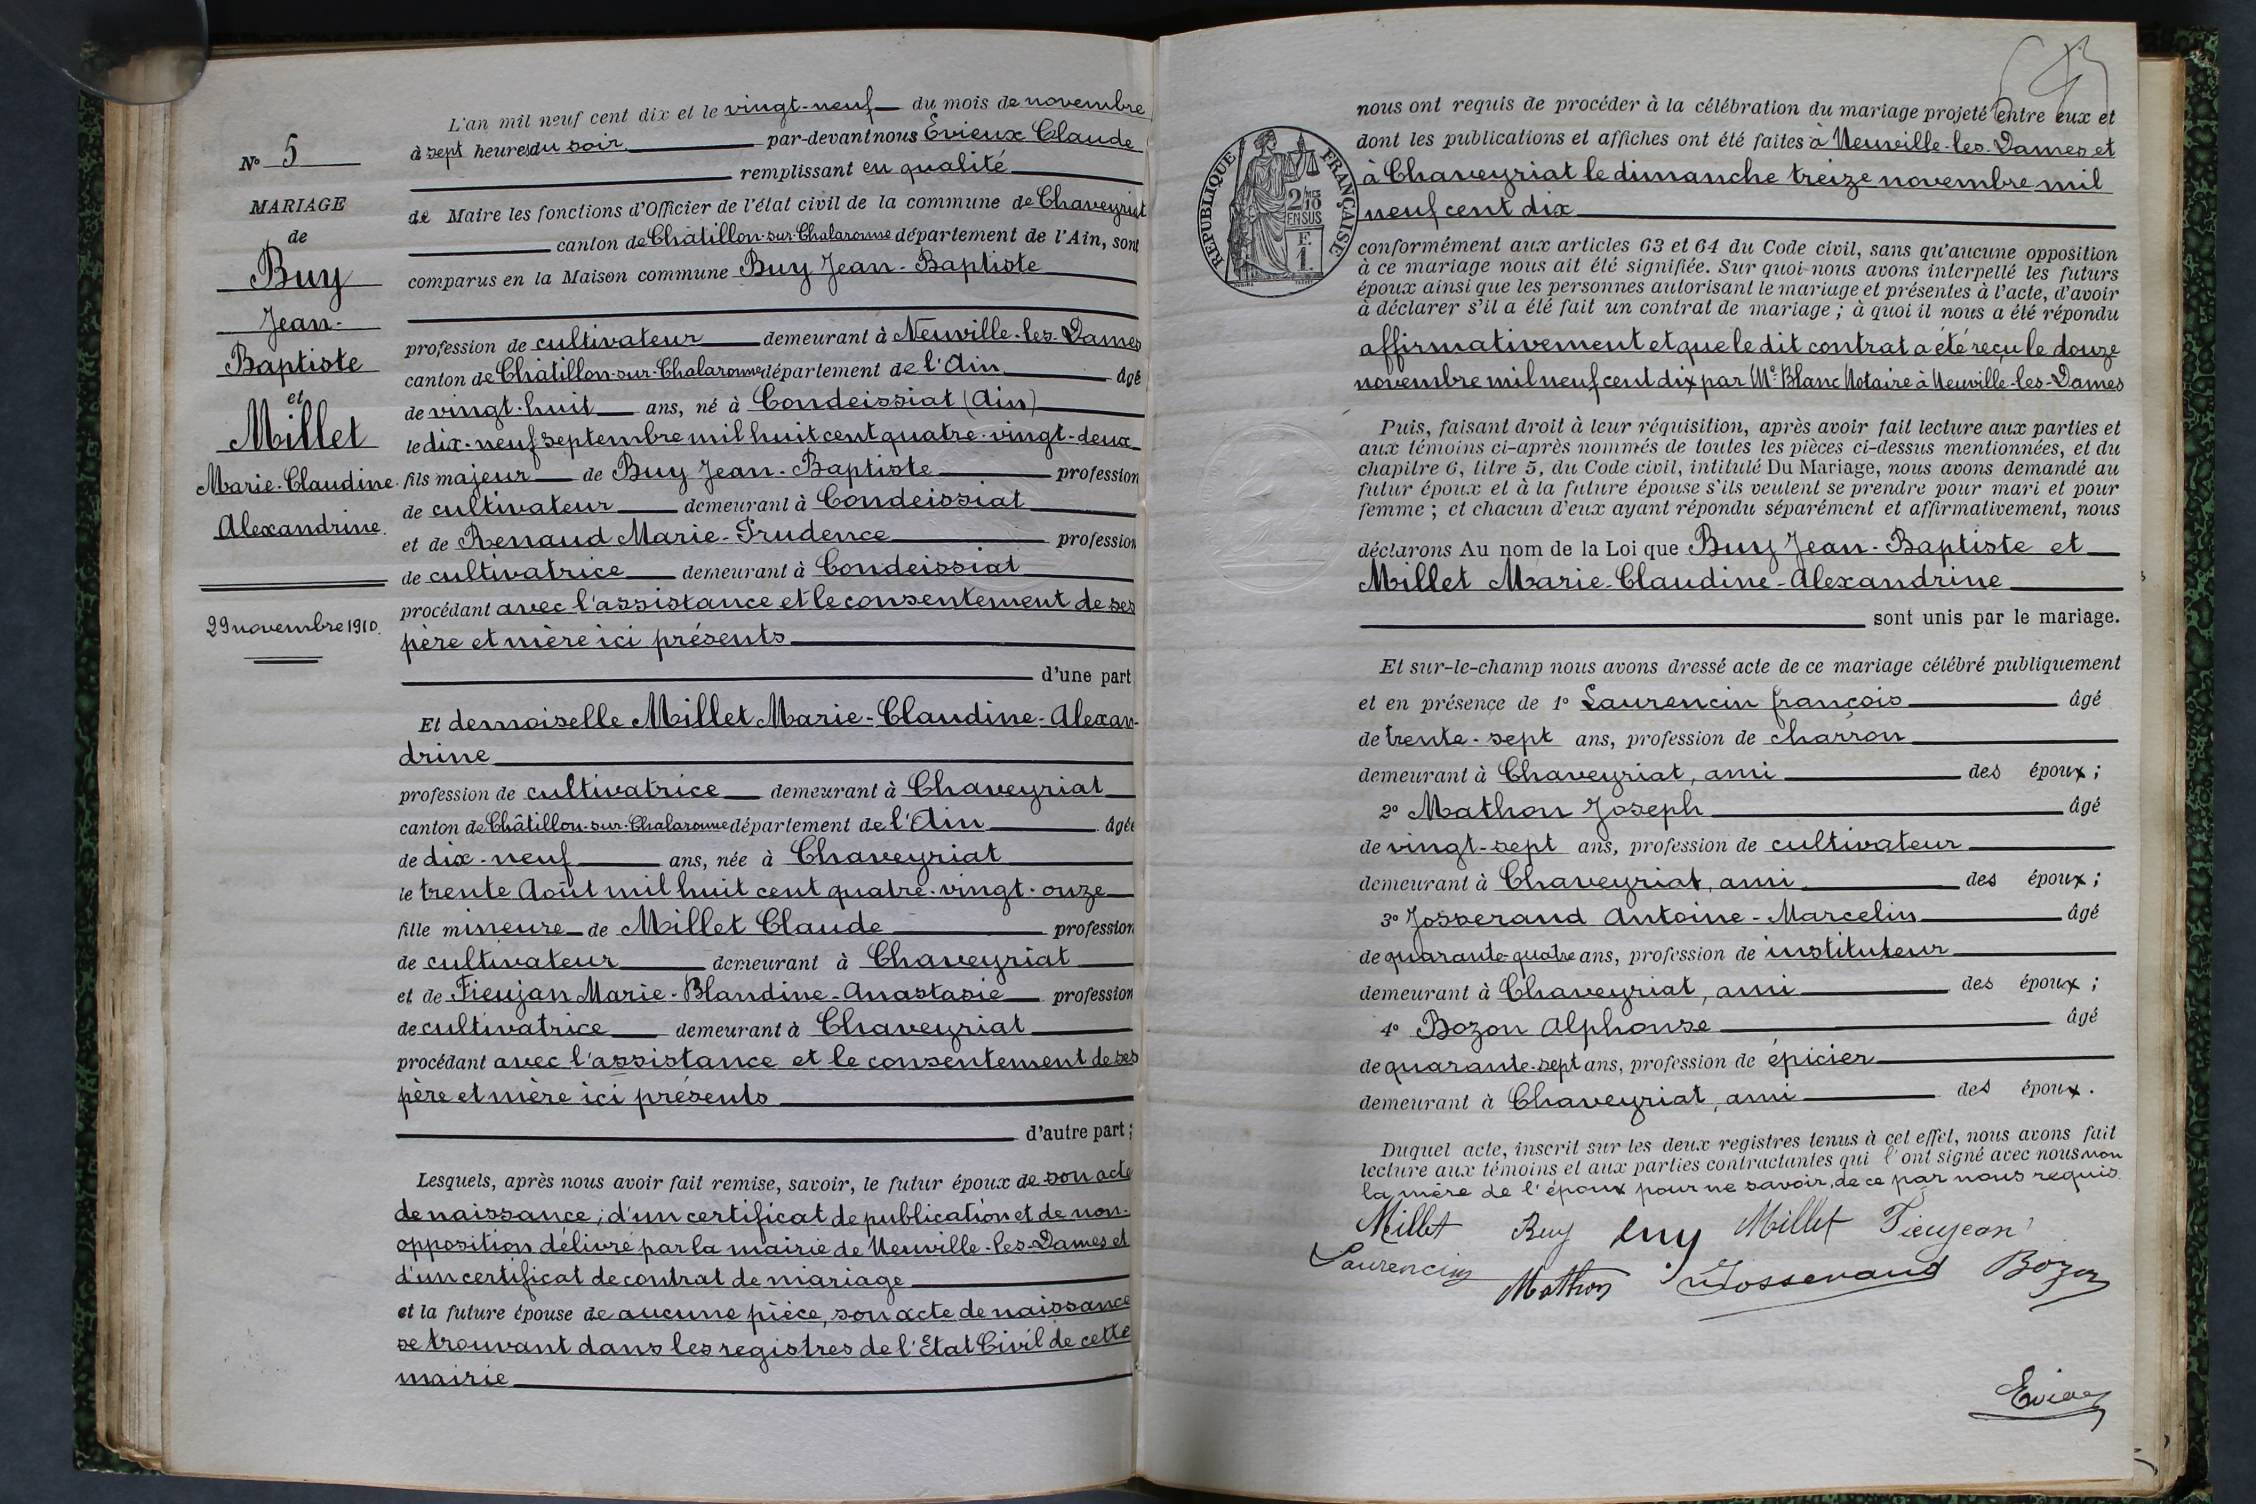 N° 5
MARIAGE
de
Buy
Jean-
Baptiste
et
Millet
Marie-Claudine-
Alexandrine.
29 novembre 1910.
L'an mil neuf cent dix et le vingt-neuf du mois de novembre
à sept heures du soir par-devant nous Evieux Claude
remplissant en qualité
de Maire les fonctions d'Officier de l'état civil de la commune de Chaveyriat
canton de Châtillon-sur-Chalaronne département de l'Ain, sont
comparus en la Maison commune Buy Jean-Baptiste
profession de cultivateur demeurant à Neuville-les-Dames
canton de Châtillon-sur-Chalaronne département de l'Ain âgé
de vingt-huit ans, né à Condeissiat (Ain)
le dix-neuf septembre mil huit cent quatre-vingt-deux
fils majeur de Buy Jean-Baptiste profession
de cultivateur demeurant à Condeissiat
et de Renaud Marie-Prudence profession
de cultivatrice demeurant à Condeissiat
procédant avec l'assistance et le consentement de ses
père et mère ici présents
d'une part
Et demoiselle Millet Marie-Claudine-Alexan-
drine
profession de cultivatrice demeurant à Chaveyriat
canton de Châtillon-sur-Chalaronne département de l'Ain âgée
de dix-neuf ans, née à Chaveyriat
le trente Août mil huit cent quatre-vingt-onze
fille mineure de Millet Claude profession
de cultivateur demeurant à Chaveyriat
et de Fieujan Marie-Blandine-Anastasie profession
de cultivatrice demeurant à Chaveyriat
procédant avec l'assistance et le consentement de ses
père et mère ici présents
d'autre part ;
Lesquels, après nous avoir fait remise, savoir, le futur époux de son acte
de naissance ; d'un certificat de publication et de non-
opposition délivré par la mairie de Neuville-les-Dames et
d'un certificat de contrat de mariage
et la future épouse de aucune pièce, son acte de naissance
se trouvant dans les registres de l'Etat Civil de cette
mairie
RÉPUBLIQUE FRANÇAISE
2/10
EN SUS
F.
1.
nous ont requis de procéder à la célébration du mariage projeté entre eux et
dont les publications et affiches ont été faites à Neuville-les-Dames et
à Chaveyriat le dimanche treize novembre mil
neuf cent dix
conformément aux articles 63 et 64 du Code civil, sans qu'aucune opposition
à ce mariage nous ait été signifiée. Sur quoi nous avons interpellé les futurs
époux ainsi que les personnes autorisant le mariage et présentes à l'acte, d'avoir
à déclarer s'il a été fait un contrat de mariage ; à quoi il nous a été répondu
affirmativement et que le dit contrat a été reçu le douze
novembre mil neuf cent dix par Me Blanc Notaire à Neuville-les-Dames
Puis, faisant droit à leur réquisition, après avoir fait lecture aux parties et
aux témoins ci-après nommés de toutes les pièces ci-dessus mentionnées, et du
chapitre 6, titre 5, du Code civil, intitulé Du Mariage, nous avons demandé au
futur époux et à la future épouse s'ils veulent se prendre pour mari et pour
femme ; et chacun d'eux ayant répondu séparément et affirmativement, nous
déclarons Au nom de la Loi que Buy Jean-Baptiste et
Millet Marie-Claudine-Alexandrine
sont unis par le mariage.
Et sur-le-champ nous avons dressé acte de ce mariage célébré publiquement
et en présence de 1° Laurencin françois âgé
de trente-sept ans, profession de charron
demeurant à Chaveyriat, ami des époux ;
2° Mathon Joseph âgé
de vingt-sept ans, profession de cultivateur
demeurant à Chaveyriat, ami des époux ;
3° Josserand Antoine-Marcelin âgé
de quarante-quatre ans, profession de instituteur
demeurant à Chaveyriat, ami des époux ;
4° Bozon Alphonse âgé
de quarante-sept ans, profession de épicier
demeurant à Chaveyriat, ami des époux.
Duquel acte, inscrit sur les deux registres tenus à cet effet, nous avons fait
lecture aux témoins et aux parties contractantes qui l'ont signé avec nous non
la mère de l'époux pour ne savoir, de ce par nous requis.
Millet Buy buy Millet Fieujean
Laurencin Mathon Josserand Bozon
Evieux